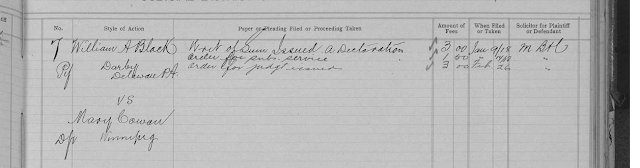 No. Style of Action Paper or Pleading Filed or Proceeding Taken Amount of Fees When Filed or Taken Solicitor for Plaintiff or Defendant
7 William A Black Writ of Sum Issued & Declaration 3 00 Jan 9/18 M B & C
Order for subs. service 1 00 " "
Pf Darby Order for judgt issued 3 00 Feb 26 "
Delaware P.A.
VS
Mary Cowan
Df Winnipeg